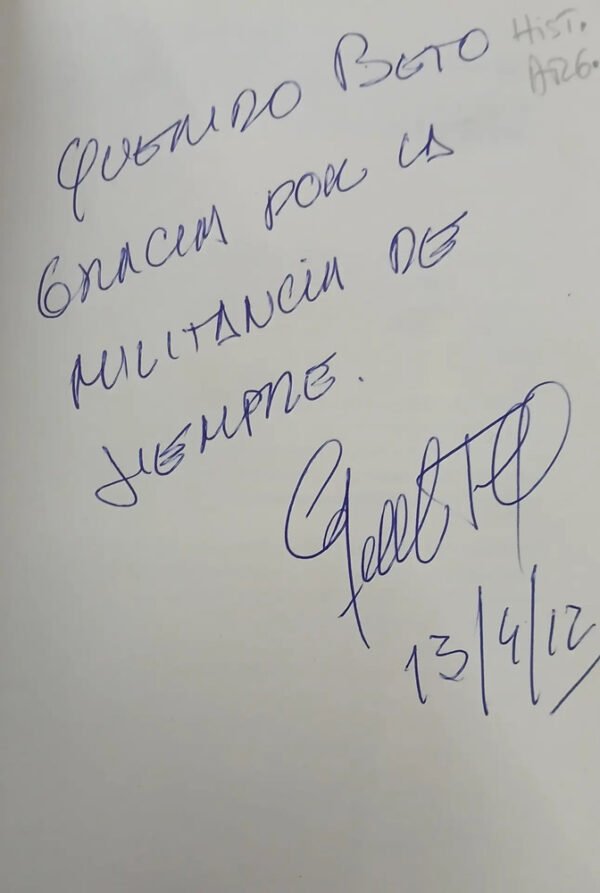 Hist.
Arg.
QUERIDO BETO
GRACIAS POR LA
MILITANCIA DE
SIEMPRE.
13/4/12